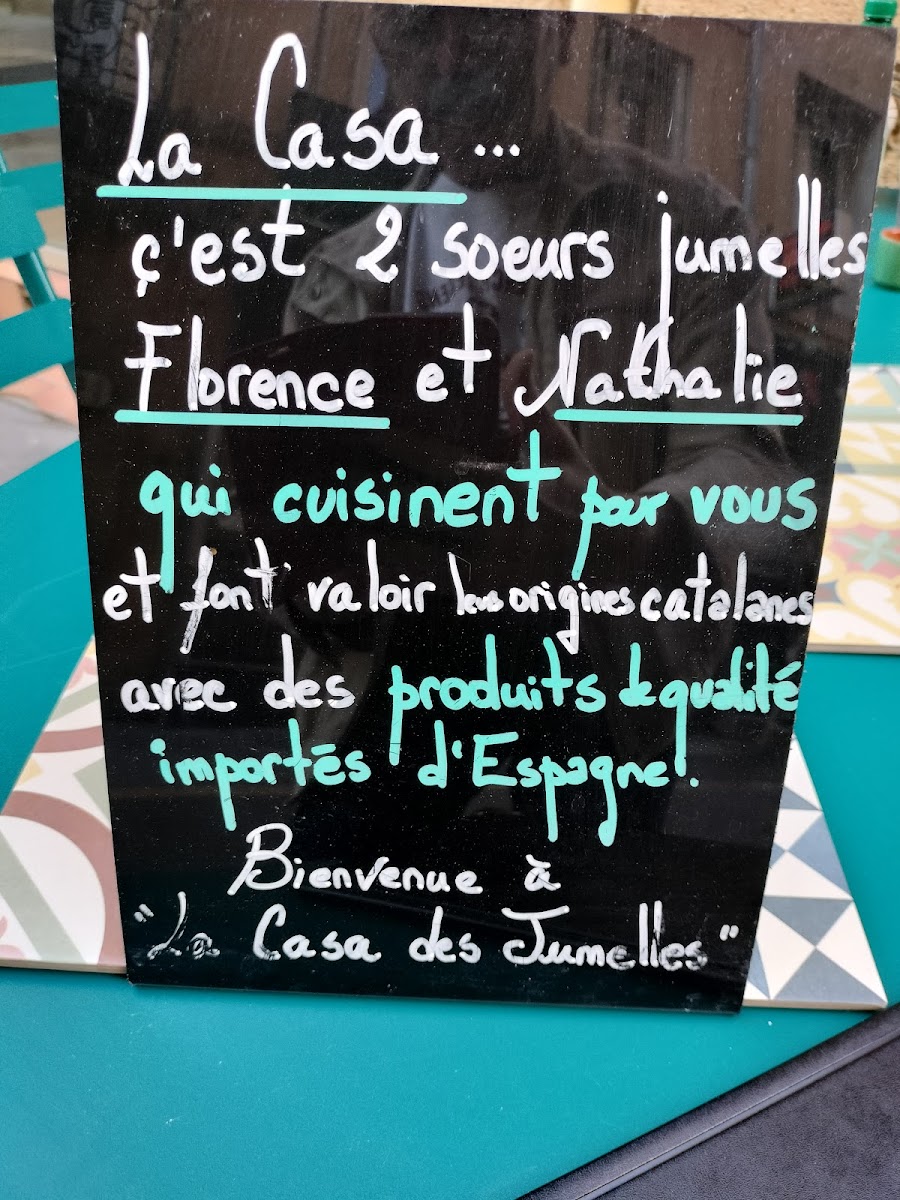 La Casa ...
ç'est 2 soeurs jumelles
Florence et Nathalie
qui cuisinent pour vous
et font valoir leurs origines catalanes
avec des produits de qualité
importés d'Espagne.
Bienvenue à
"La Casa des Jumelles"